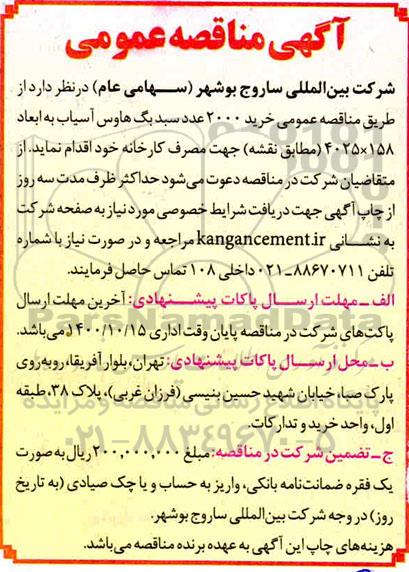 آگهی مناقصه عمومی
شرکت بین‌المللی ساروج بوشهر (سهامی عام) درنظر دارد از
طریق مناقصه عمومی خرید ۲۰۰۰ عدد سبد بگ هاوس آسیاب به ابعاد
۱۵۸×۴۰۲۵ (مطابق نقشه) جهت مصرف کارخانه خود اقدام نماید. از
متقاضیان شرکت در مناقصه دعوت می‌شود حداکثر ظرف مدت سه روز
از چاپ آگهی جهت دریافت شرایط خصوصی مورد نیاز به صفحه شرکت
به نشانی kangancement.ir مراجعه و در صورت نیاز با شماره
تلفن ۸۸۶۷۰۷۱۱-۰۲۱ داخلی ۱۰۸ تماس حاصل فرمایند.
الف ـ مهلت ارسال پاکات پیشنهادی: آخرین مهلت ارسال
پاکت‌های شرکت در مناقصه پایان وقت اداری ۱۴۰۰/۱۰/۱۵ می‌باشد.
ب ـ محل ارسال پاکات پیشنهادی: تهران، بلوار آفریقا، روبه‌روی
پارک صبا، خیابان شهید حسین بنیسی (فرزان غربی)، پلاک ۳۸، طبقه
اول، واحد خرید و تدارکات.
ج ـ تضمین شرکت در مناقصه: مبلغ ۲۰۰,۰۰۰,۰۰۰ ریال به صورت
یک فقره ضمانت‌نامه بانکی، واریز به حساب و یا چک صیادی (به تاریخ
روز) در وجه شرکت بین‌المللی ساروج بوشهر.
هزینه‌های چاپ این آگهی به عهده برنده مناقصه می‌باشد.
ParsNamadData
پایگاه اطلاع رسانی مناقصه و مزایده
۰۲۱-۸۸۳۴۹۶۷۰-۵